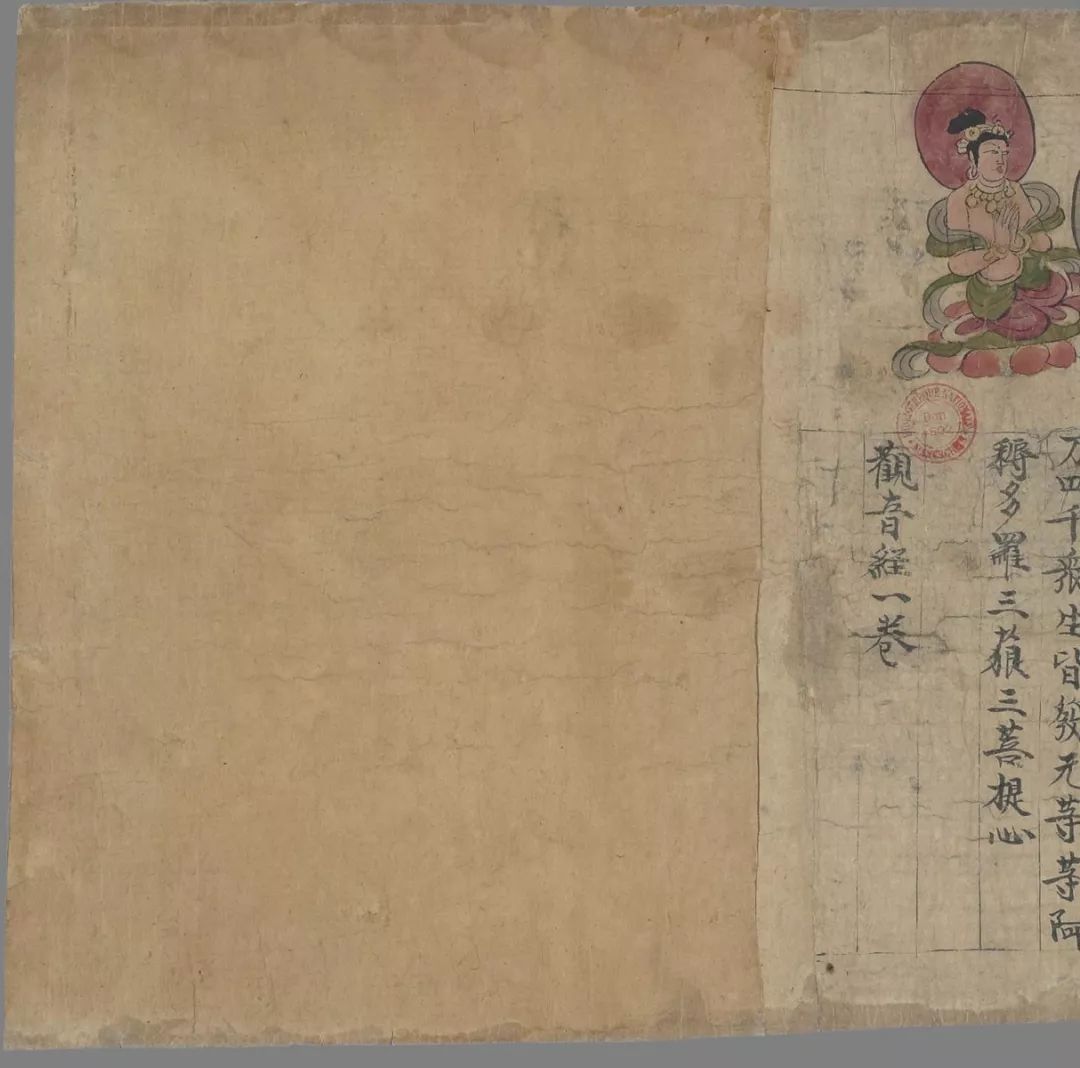 万四千衆生皆發无等等阿
耨多羅三藐三菩提心
觀音経一卷
BIBLIOTHÈQUE NATIONALE
Don
MANUSCRITS